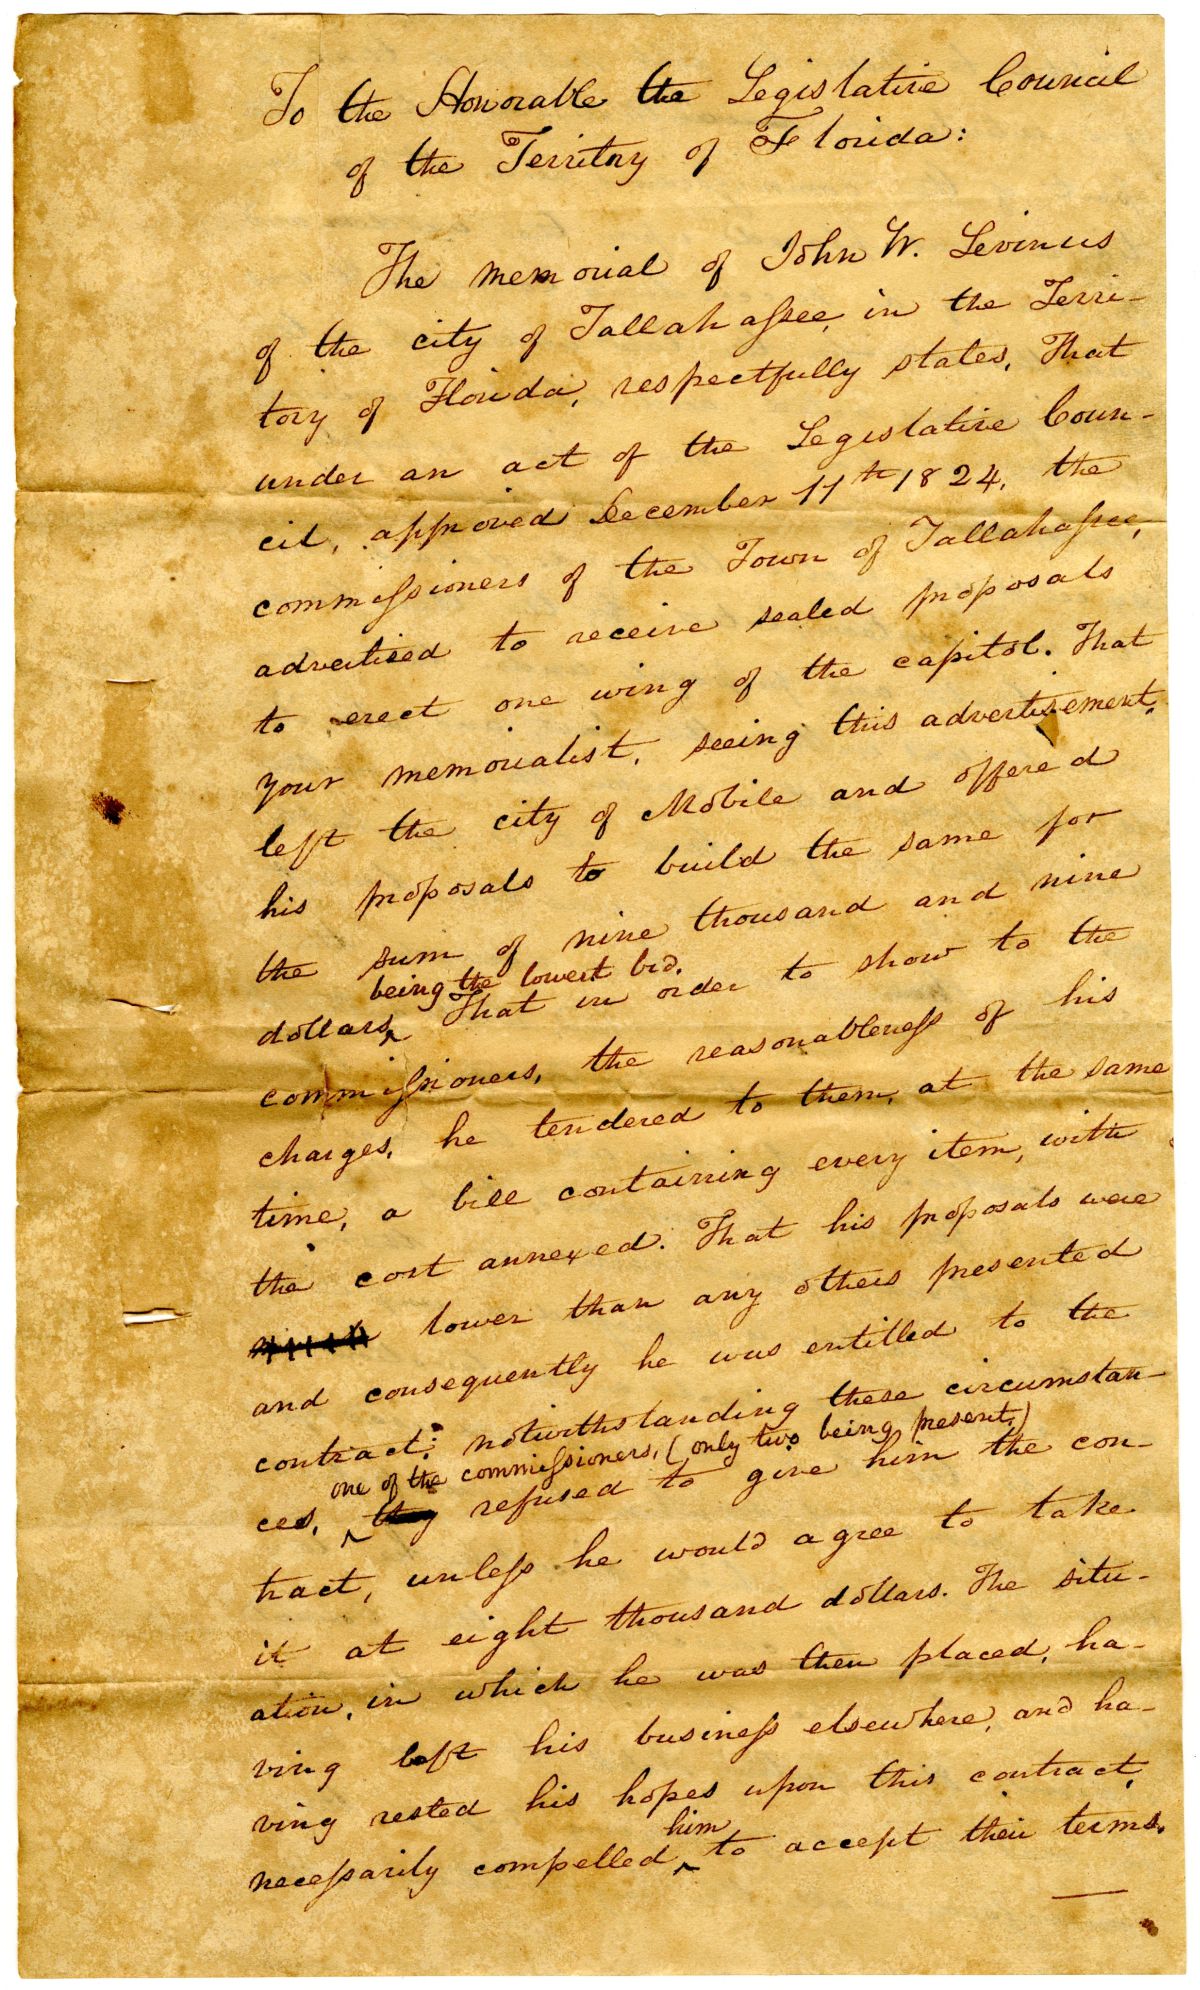 To the Honorable the Legislative Council
of the Territory of Florida:
The memorial of John W. Levinus
of the city of Tallahassee, in the Terri-
tory of Florida, respectfully states, That
under an act of the Legislative Coun-
cil, approved December 11th 1824, the
commissioners of the Town of Tallahassee,
advertised to receive sealed proposals
to erect one wing of the capitol. That
your memorialist, seeing this advertisement,
left the city of Mobile and offered
his proposals to build the same for
the sum of nine thousand and nine
being the lowest bid.
dollars‸ That in order to show to the
commissioners, the reasonableness of his
charges, he tendered to them, at the same
time, a bill containing every item, with
the cost annexed. That his proposals were
lower than any others presented
and consequently he was entitled to the
contract: notwithstanding these circumstan-
one of the commissioners, (only two being present,)
ces, ‸ they refused to give him the con-
tract, unless he would agree to take
it at eight thousand dollars. The situ-
ation, in which he was then placed, ha-
ving left his business elsewhere, and ha-
ving rested his hopes upon this contract,
him
necessarily compelled ‸ to accept their terms.